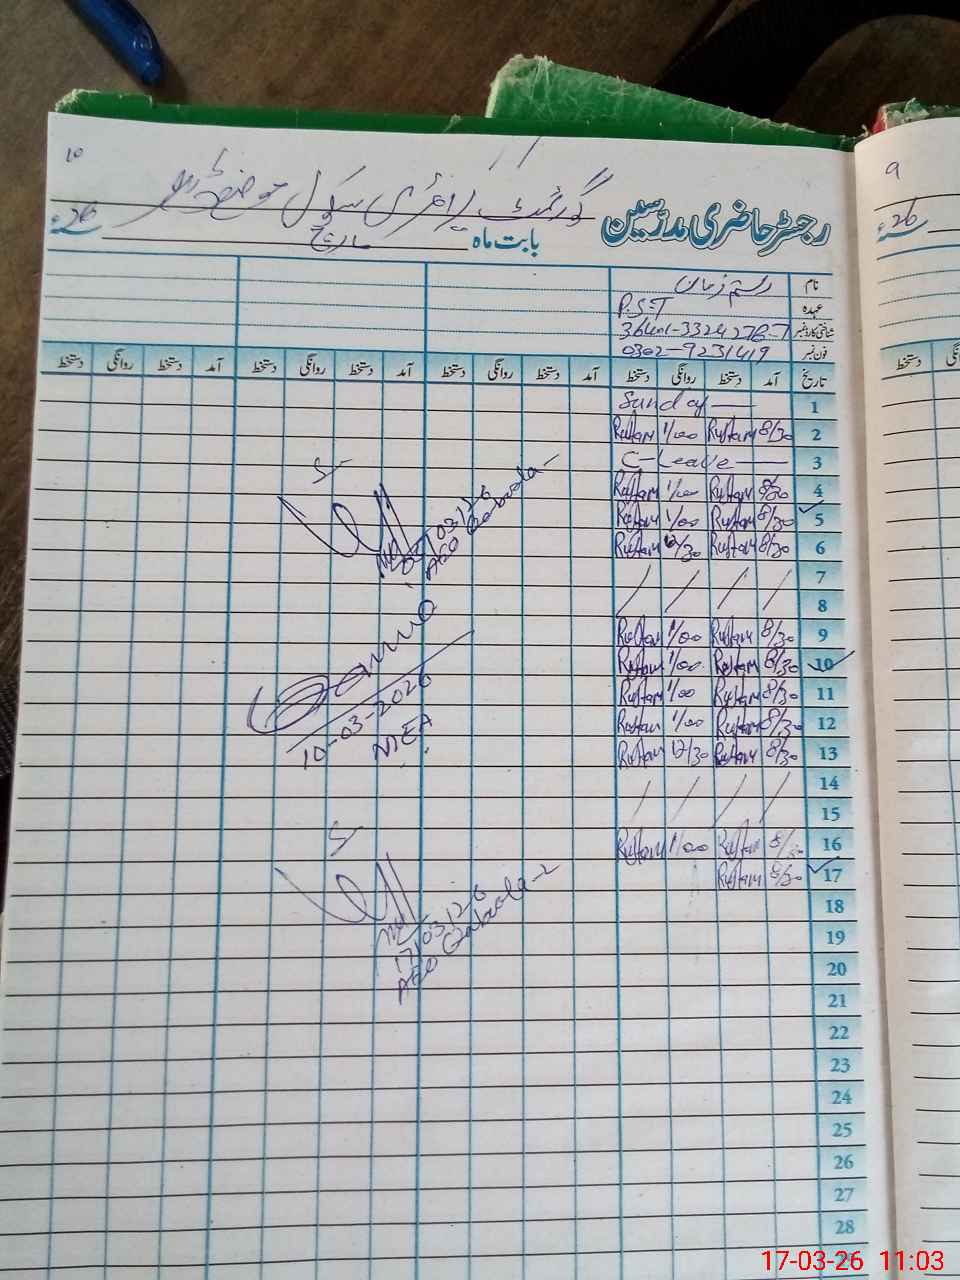 10
گورنمنٹ پرائمری سکول موضع
رجسٹر حاضری مدرسین
بابت ماہ مارچ 26ء
نام رستم زمان
عہدہ P.S.T
شناختی کارڈ نمبر
فون نمبر 0302-9231419
تاریخ آمد دستخط روانگی دستخط آمد دستخط روانگی دستخط آمد دستخط روانگی دستخط
1 Sunday
2 8/30 Rustam 1/00 Rustam
3 C-Leave
4 8/30 Rustam 1/00 Rustam
5 8/30 Rustam 1/00 Rustam
6 8/30 Rustam 12/30 Rustam
7
8
9 8/30 Rustam 1/00 Rustam
10 8/30 Rustam 1/00 Rustam
11 8/30 Rustam 1/00 Rustam
12 8/30 Rustam 1/00 Rustam
13 8/30 Rustam 12/30 Rustam
14
15
16 8/30 Rustam 1/00 Rustam
17 8/30 Rustam
18
19
20
21
22
23
24
25
26
27
28
29
05/03/26
AEO
10-03-2026
MEA
17/03/26
AEO
9
26ء
دستخط
17-03-26 11:03